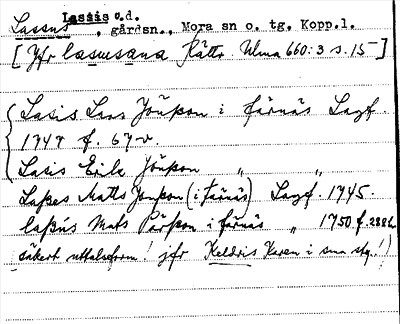 Lassis o.d.
Lassus, gårdsn., Mora sn o. tg. Kopp.l.
[Jfr lasusana Rättv. Ulma 660:3 s. 15]
Lasis Lars Jönsson i färnäs Lagf.
1747 f. 67 v.
Lasis Erik Jönsson " "
Lases Matts Jonsson (i färnäs) Lagf. 1745.
lasus Mats Pärsson i färnäs " 1750 f. 288 b
(säkert uttalsform! jfr Keldris Karen i sma stg.!)